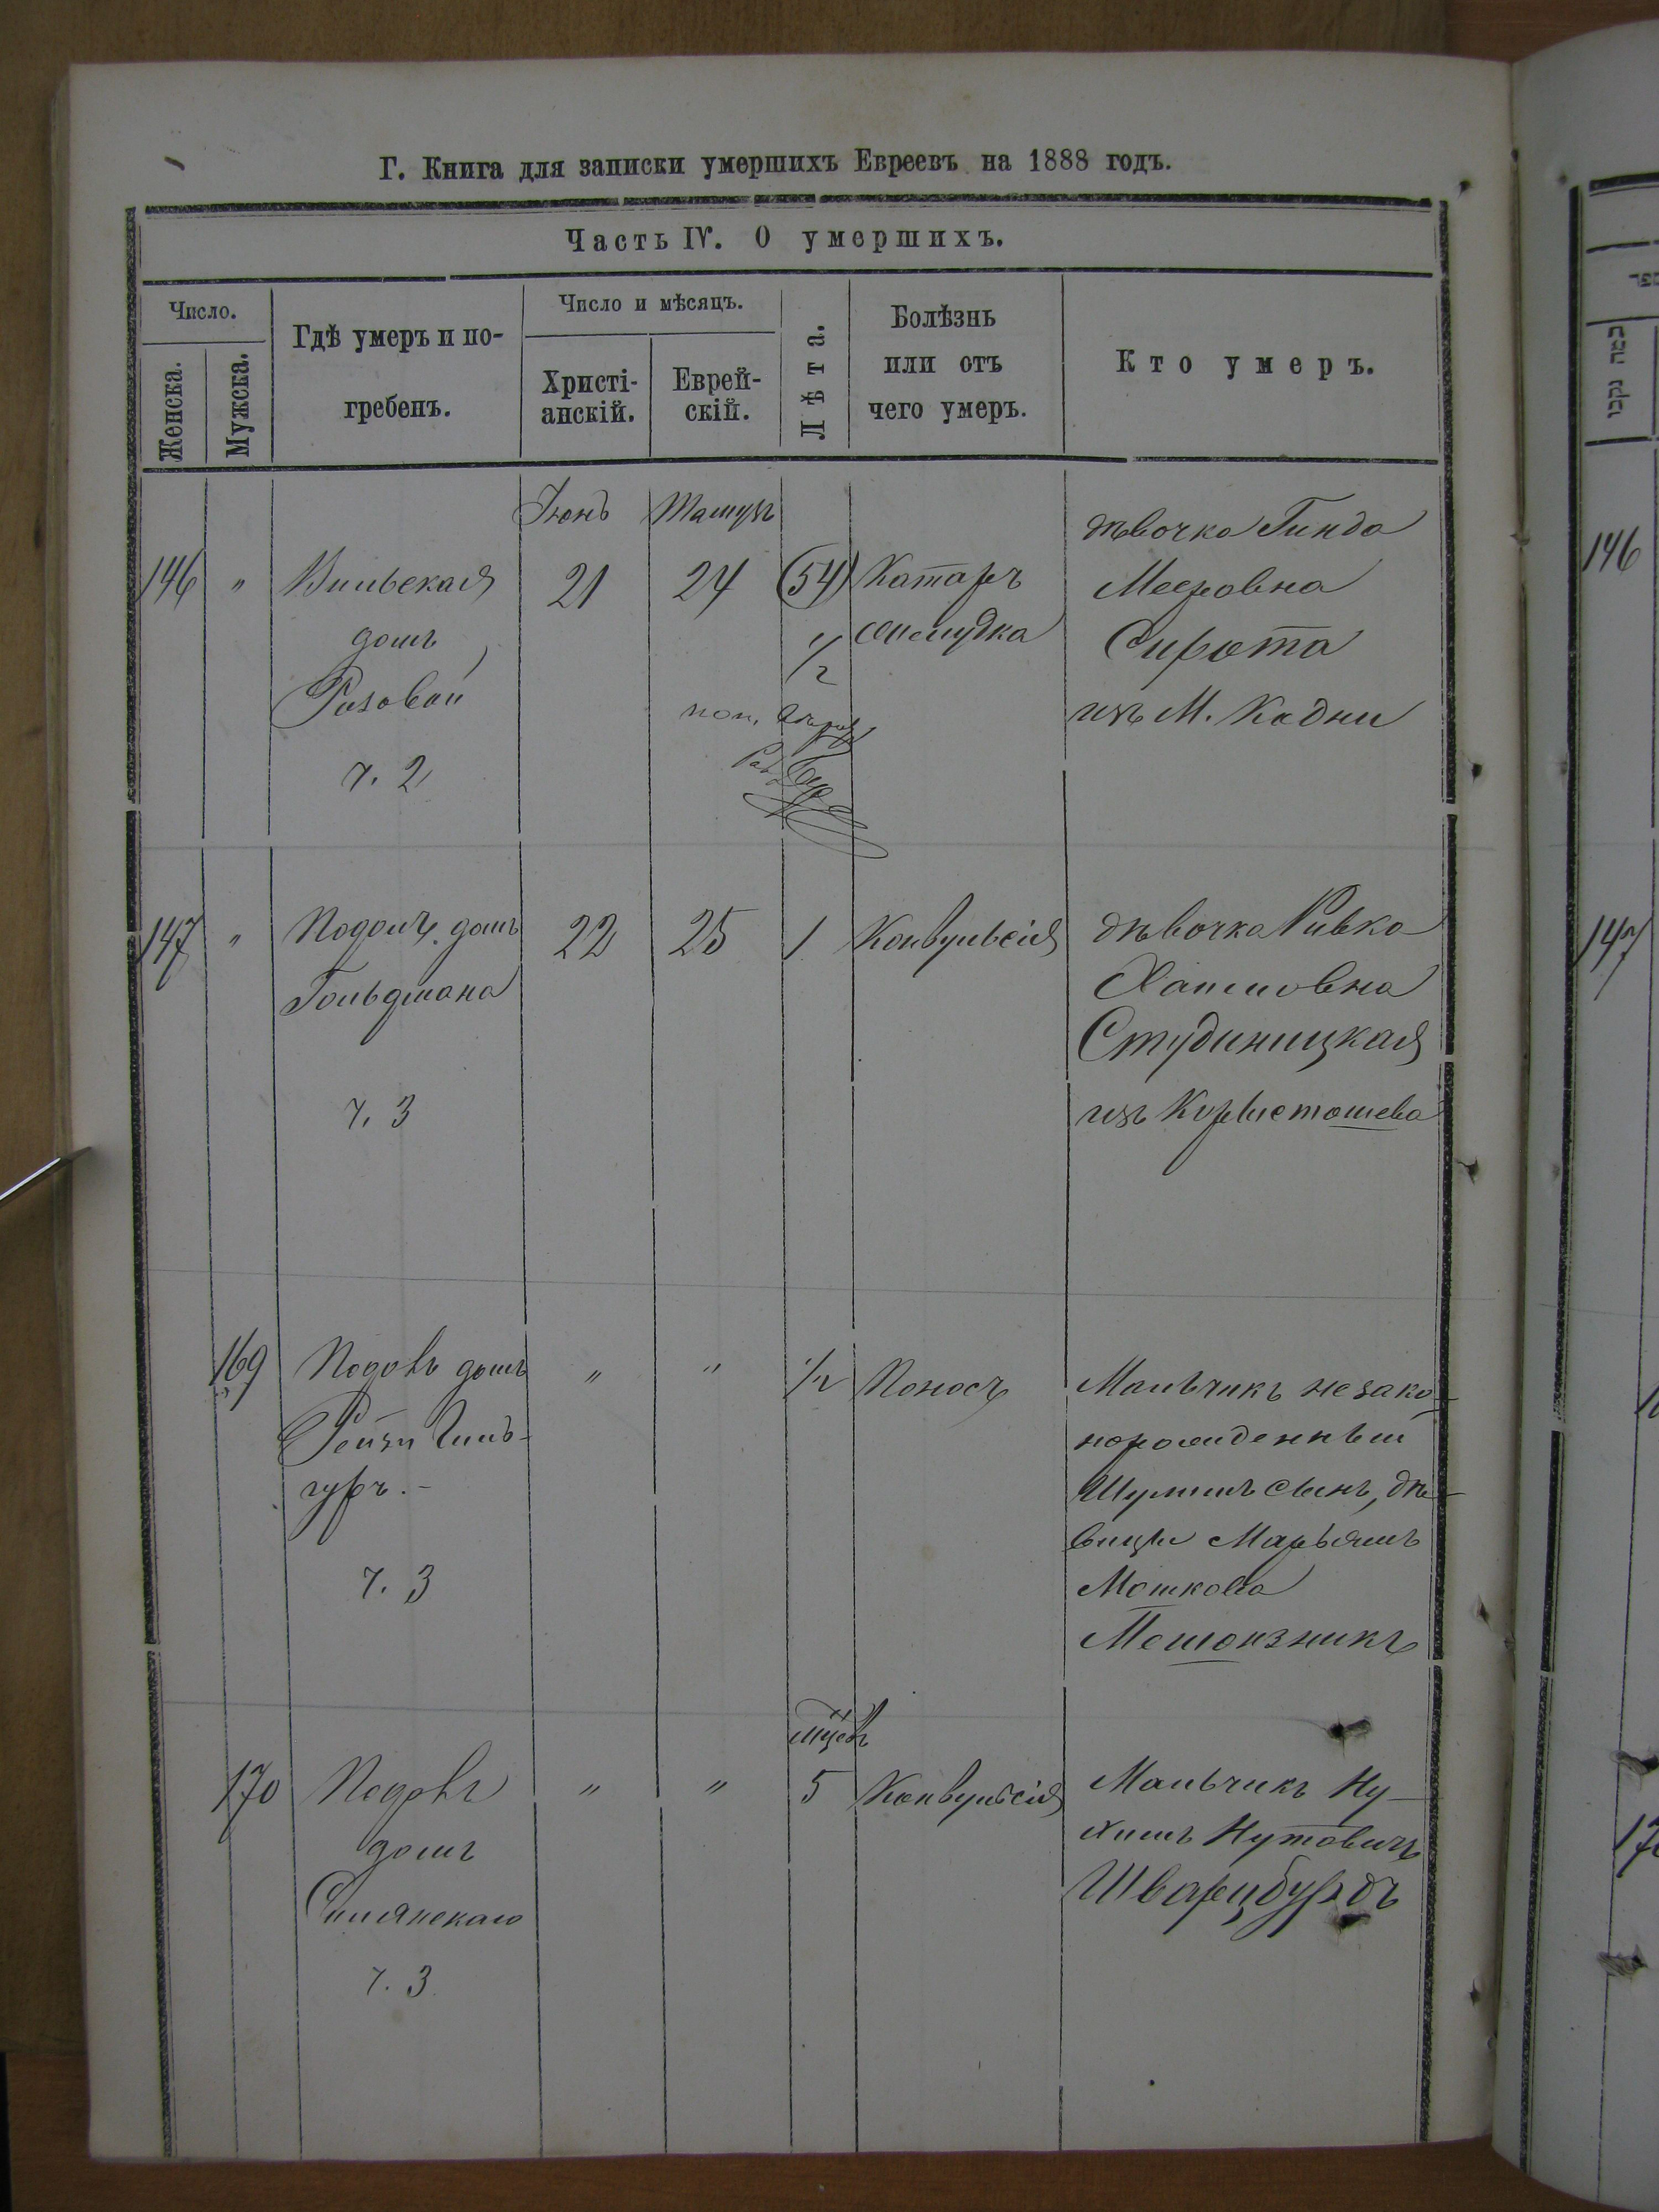 Г. Книга для записки умершихъ Евреевъ на 1888 годъ.
Часть IV. О умершихъ.
Число.
Женска.
Мужска.
Гдѣ умеръ и по-
гребенъ.
Число и мѣсяцъ.
Христі-
анскій.
Еврей-
скій.
Лѣта.
Болѣзнь
или отъ
чего умеръ.
Кто умеръ.
Іюнь
Тамузъ
146
"
Вильская
домъ
Ризовой
ч. 2
21
24
(54)
1/2
Катаръ
желудка
дѣвочка Гинда
Мееровна
Сирота
изъ М. Кодни
147
"
Подол. домъ
Гольдмана
ч. 3
22
25
1
Конвульсія
дѣвочка Ривка
Хаимовна
Студиницкая
изъ Коростышева
169
Подолъ домъ
Рейзи
ч. 3
"
"
1/2
Поносъ
Мальчикъ незако-
норожденный
Шулимъ сынъ, дѣ-
вицы Марьямъ
Мошкова
170
Подолъ
домъ
ч. 3
"
"
мѣсяц
5
Конвульсія
Мальчикъ Ну-
химъ Нутовичъ
Шварцбурдъ
כמה נקבו
146
147